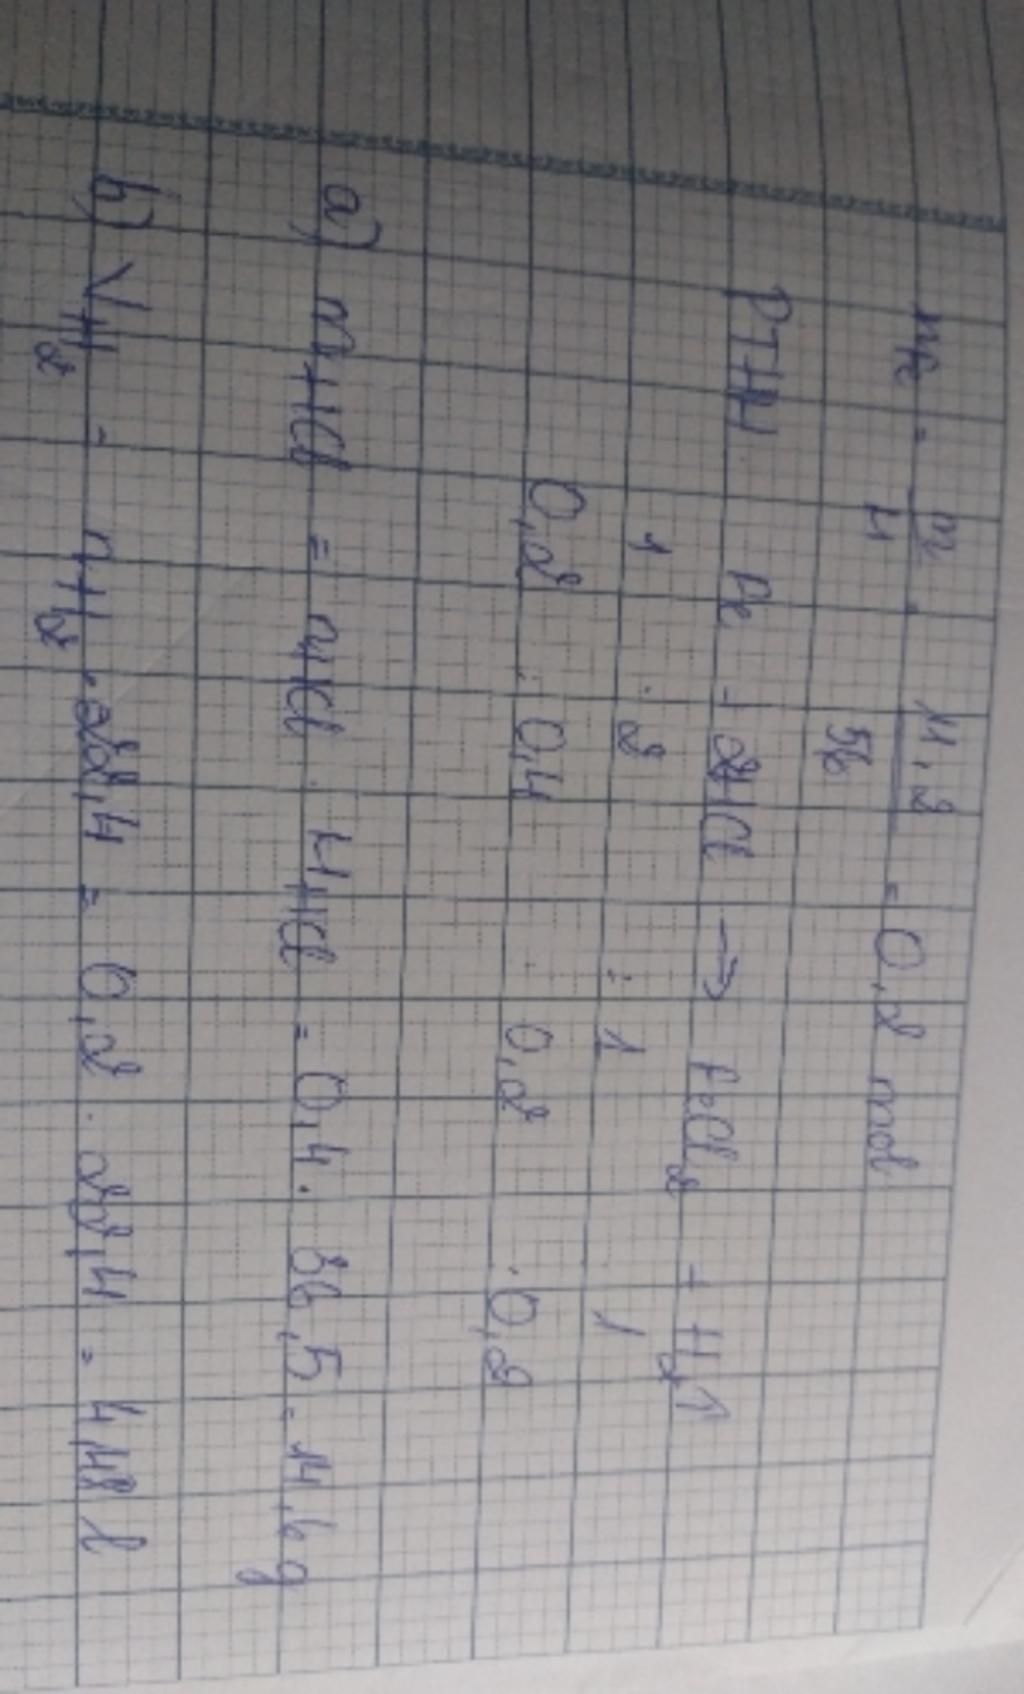 nFe = m/M = 11,2/56 = 0,2 mol
PTHH Fe + 2HCl → FeCl2 + H2↑
1 : 2 : 1 1
0,2 : 0,4 : 0,2 : 0,2
a) mHCl = nHCl . MHCl = 0,4 . 36,5 = 14,6 g
b) VH2 = nH2 . 22,4 = 0,2 . 22,4 = 4,48 l